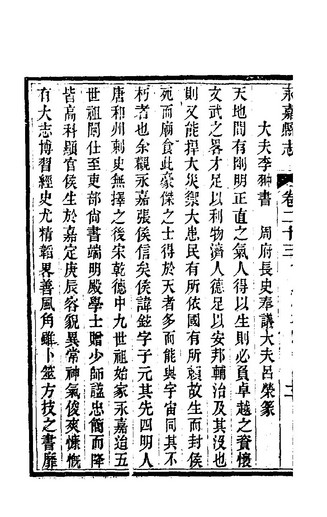 永嘉縣志 卷二十三
大夫李翀書　周府長史奉議大夫呂榮篆
天地間有剛明正直之氣人得以生則必負卓越之資懷
文武之畧才足以利物濟人德足以安邦輔治及其沒也
則又能捍大災禦大患民有所依國有所賴故生而封侯
死而廟食此豪傑之士得於天者多而能與宇宙同其不
朽者也余觀永嘉張侯信矣侯諱鉉字子元其先四明人
唐和州刺史無擇之後宋乾德中九世祖始家永嘉迨五
世祖闡仕至吏部尚書端明殿學士贈少師諡忠簡而降
皆高科顯官侯生於嘉定庚辰容貌異常神氣俊爽慷慨
有大志博習經史尤精韜畧善風角雖卜筮方技之書靡